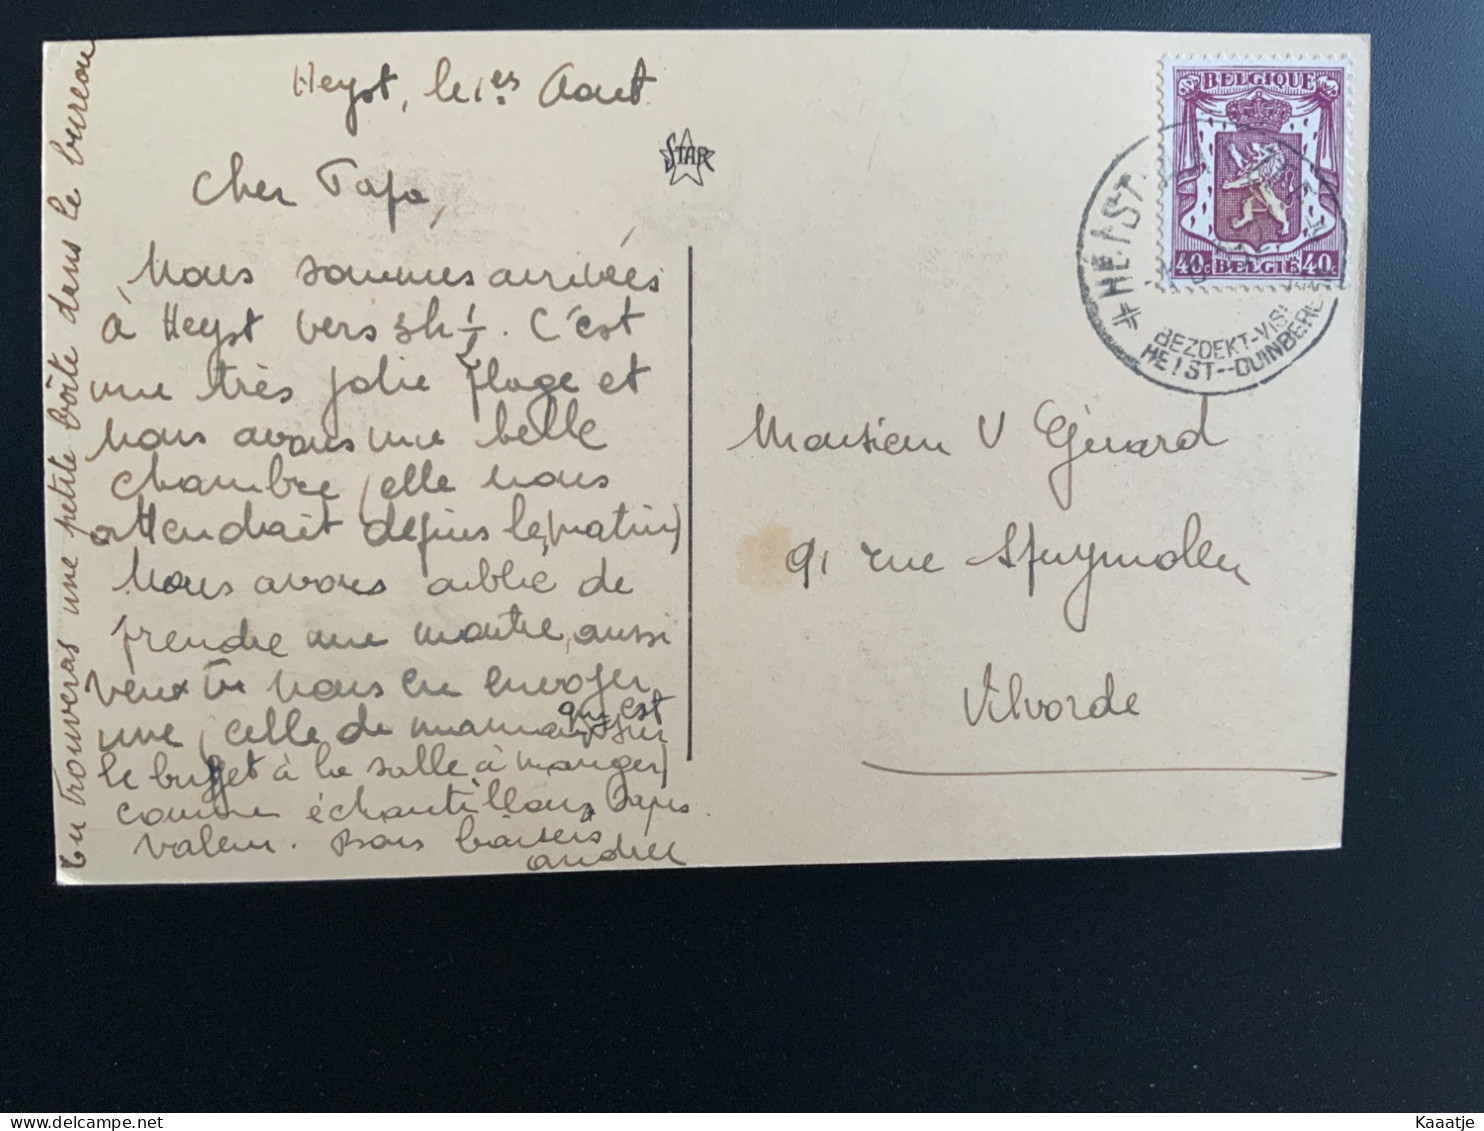 Heyst, le 1er Aout
Cher Papa,
Nous sommes arrivées
à Heyst vers 3h ½. C'est
une très jolie plage et
nous avons une belle
chambre (elle nous
attendait depuis le matin)
Nous avons oublié de
prendre une montre, aussi
veux tu nous en envoyer
une (celle de maman qui est sur
le buffet à la salle à manger)
comme échantillon sans
valeur. Bons baisers
Andrée
tu trouveras une petite boîte dans le bureau
STAR
BELGIQUE
40c BELGIË 40c
HEIST
BEZOEKT-VIS
HEIST--DUINBERGE
Monsieur V Gérard
91 rue
Vilvorde
Kaaatje